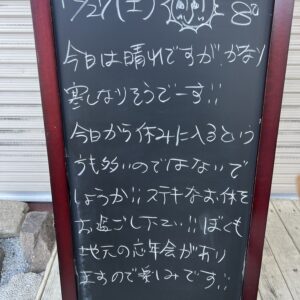 12/27(土) 8℃
今日は晴れですが、かなり
寒くなりそうでーす!!
今日から休みに入るとい
う方も多いのではないで
しょうか!!ステキなお休を
お過ごし下さい!!ぼくも
地元の忘年会があり
ますので楽しみです!!